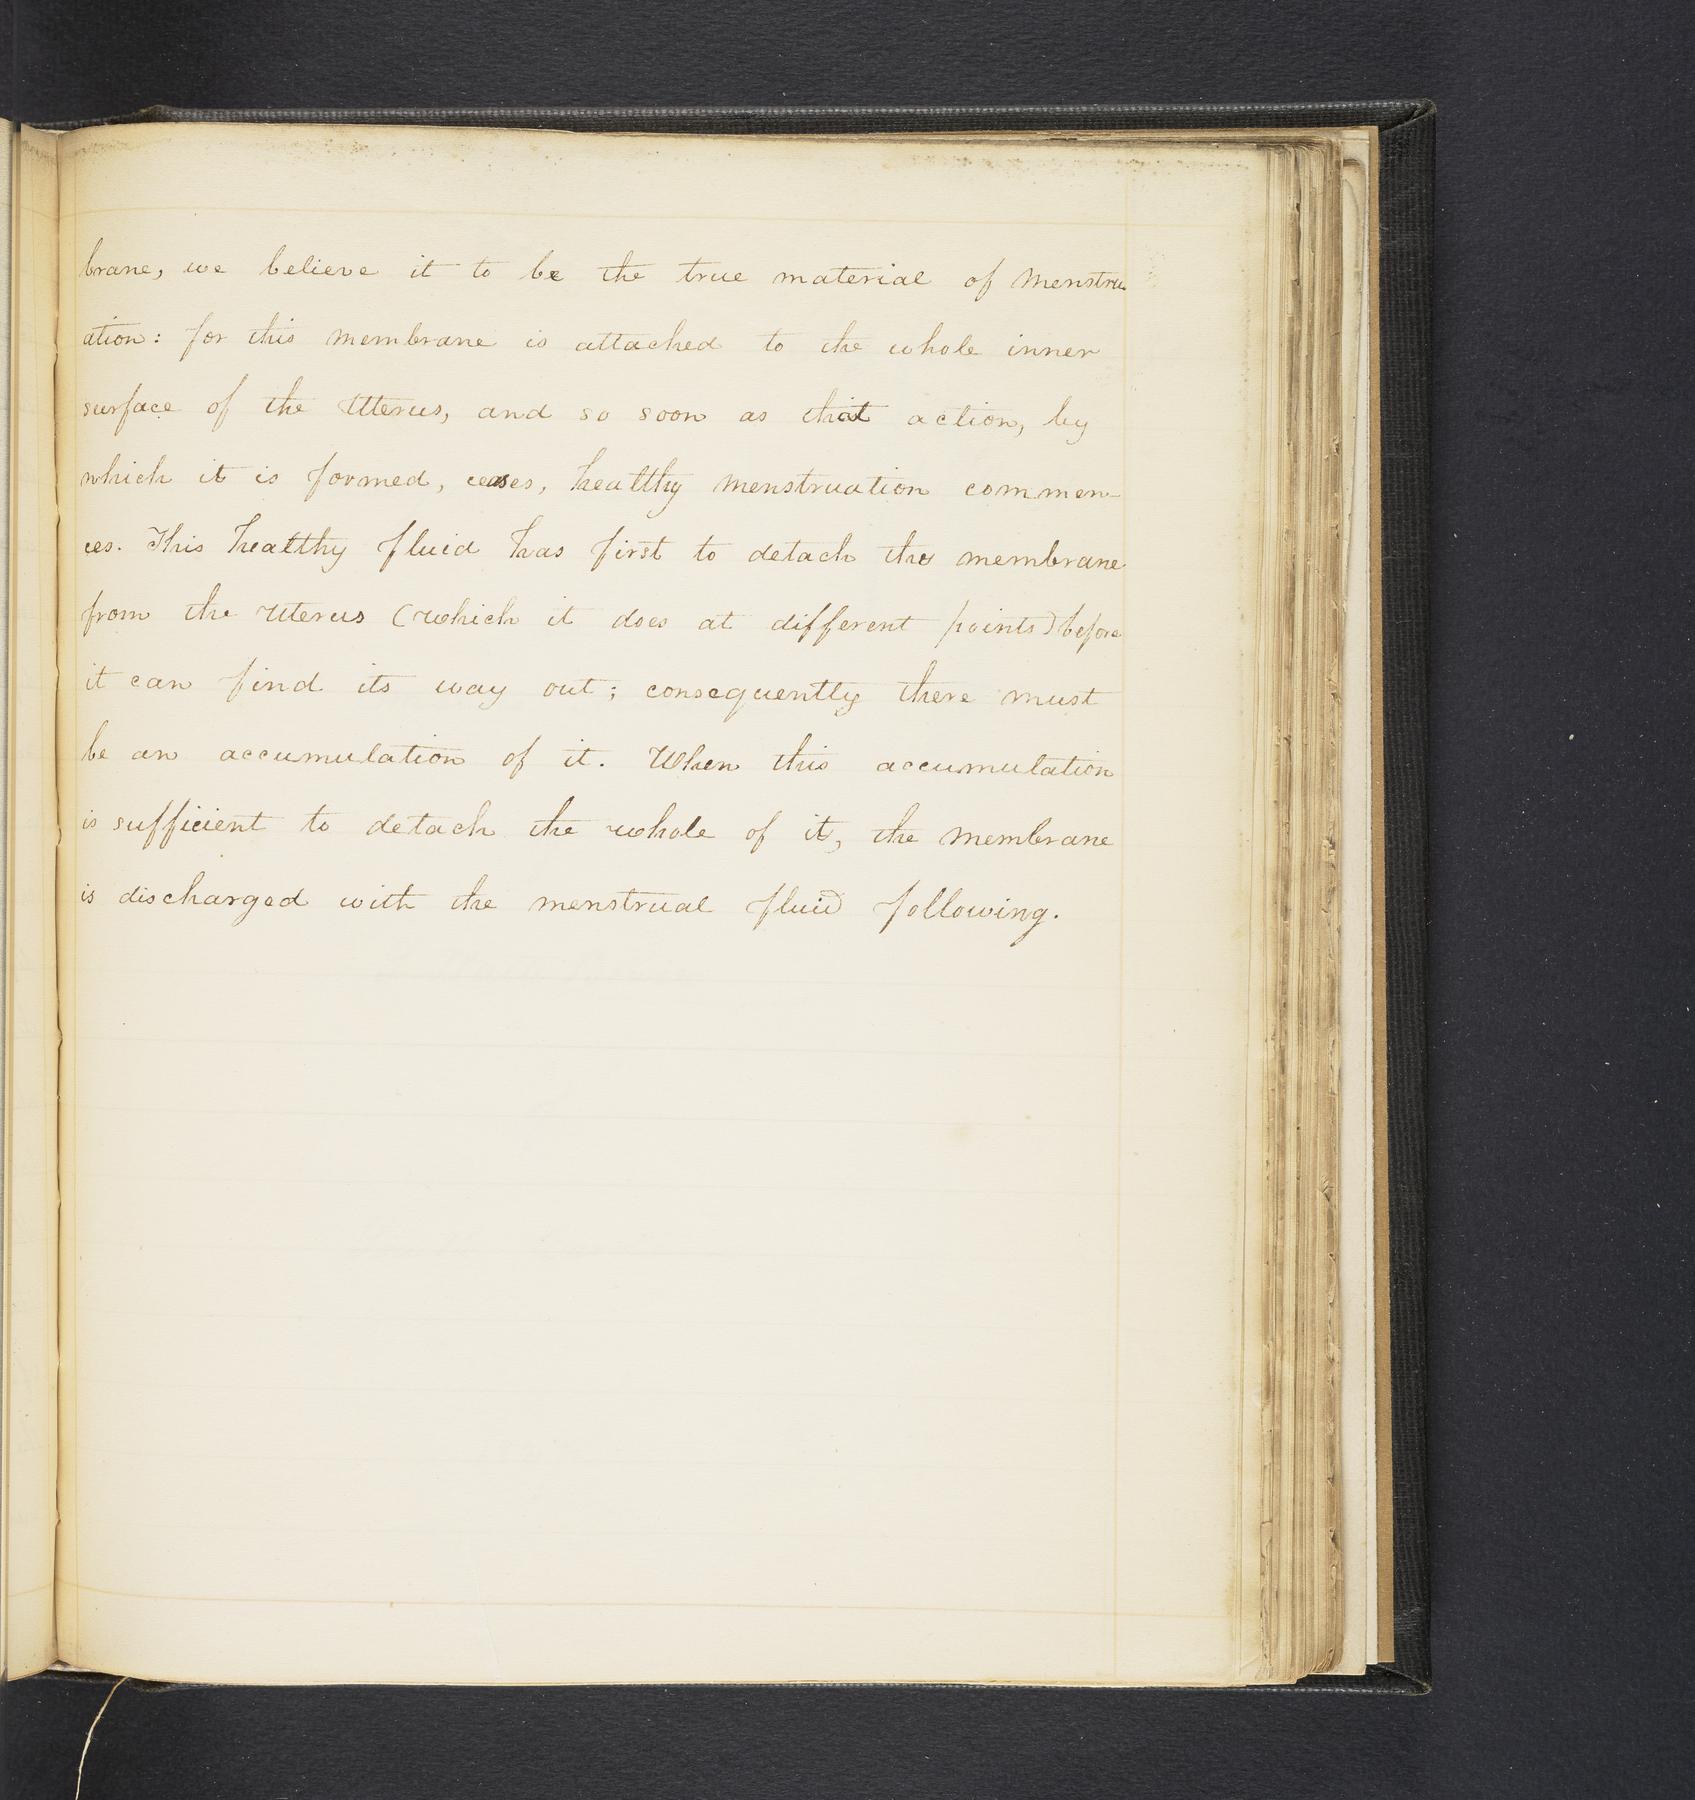 brane, we believe it to be the true material of menstru
ation: for this membrane is attached to the whole inner
surface of the Uterus, and so soon as that action, by
which it is formed, ceases, healthy menstruation commen-
ces. This healthy fluid has first to detach the membrane
from the Uterus (which it does at different points) before
it can find its way out; consequently there must
be an accumulation of it. When this accumulation
is sufficient to detach the whole of it, the membrane
is discharged with the menstrual fluid following.